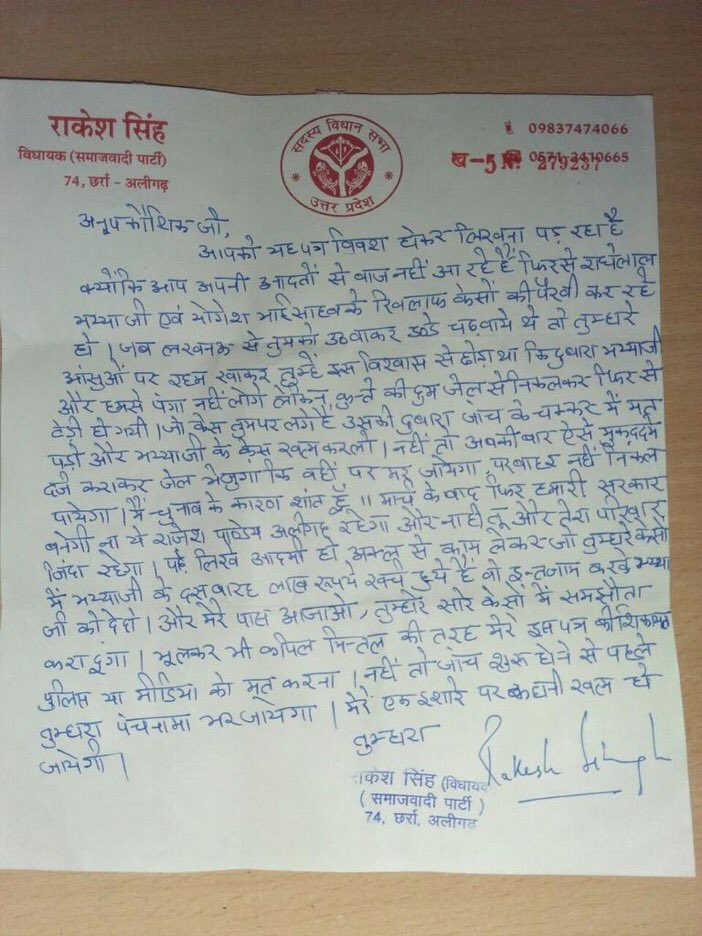 राकेश सिंह
विधायक (समाजवादी पार्टी)
74, छर्रा - अलीगढ़
सदस्य विधान सभा
उत्तर प्रदेश
09837474066
0571-2410665
ख-5 N. 279237
अनूप कौशिक जी,
आपको यह पत्र विवश होकर लिखना पड़ रहा है
क्योंकि आप अपनी आदतों से बाज नहीं आ रहे हैं फिर से राधेलाल
भय्याजी एवं योगेश भाईसाहब के खिलाफ केसों की पैरवी कर रहे
हो । जब लखनऊ से तुमको उठवाकर डन्डे चढ़वाये थे तो तुम्हारे
आंसुओं पर रहम खाकर तुम्हें इस विश्वास से छोड़ा था कि दुबारा भय्याजी
और हमसे पंगा नहीं लोगे लेकिन कुत्ते की दुम जेल से निकलकर फिर से
टेड़ी हो गयी । जो केस तुमपर लगे हैं उसकी दुबारा जांच के चक्कर में मत
पड़ो और भय्याजी के केस खत्म करलो । नहीं तो अबकी बार ऐसे मुकददमे
दर्ज कराकर जेल भेजुगां कि वहीं पर मर जायेगा पर बाहर नहीं निकल
पायेगा । मैं चुनाव के कारण शांत हूँ ।। मार्च के बाद फिर हमारी सरकार
बनेगी ना ये राजेश पाण्डेय अलीगढ़ रहेगा और ना ही तू और तेरा परिवार
जिंदा रहेगा । पढ़े लिखे आदमी हो अक्ल से काम लेकर जो तुम्हारे केसों
में भय्याजी के दस बारह लाख रूपये खर्च हुये हैं वो इन्तजाम करके भय्या
जी को देदो । और मेरे पास आजाओ, तुम्हारे सारे केसों में समझौता
करा दूंगा । भूलकर भी कपिल मित्तल की तरह मेरे इस पत्र की शिकायत
पुलिस या मीडिया को मत करना । नहीं तो जांच शुरू होने से पहले
तुम्हारा पंचनामा भर जायेगा । मेरे एक इशारे पर कहानी खत्म हो
जायेगी ।
तुम्हारा
Rakesh Singh
राकेश सिंह (विधायक
( समाजवादी पार्टी )
74, छर्रा, अलीगढ